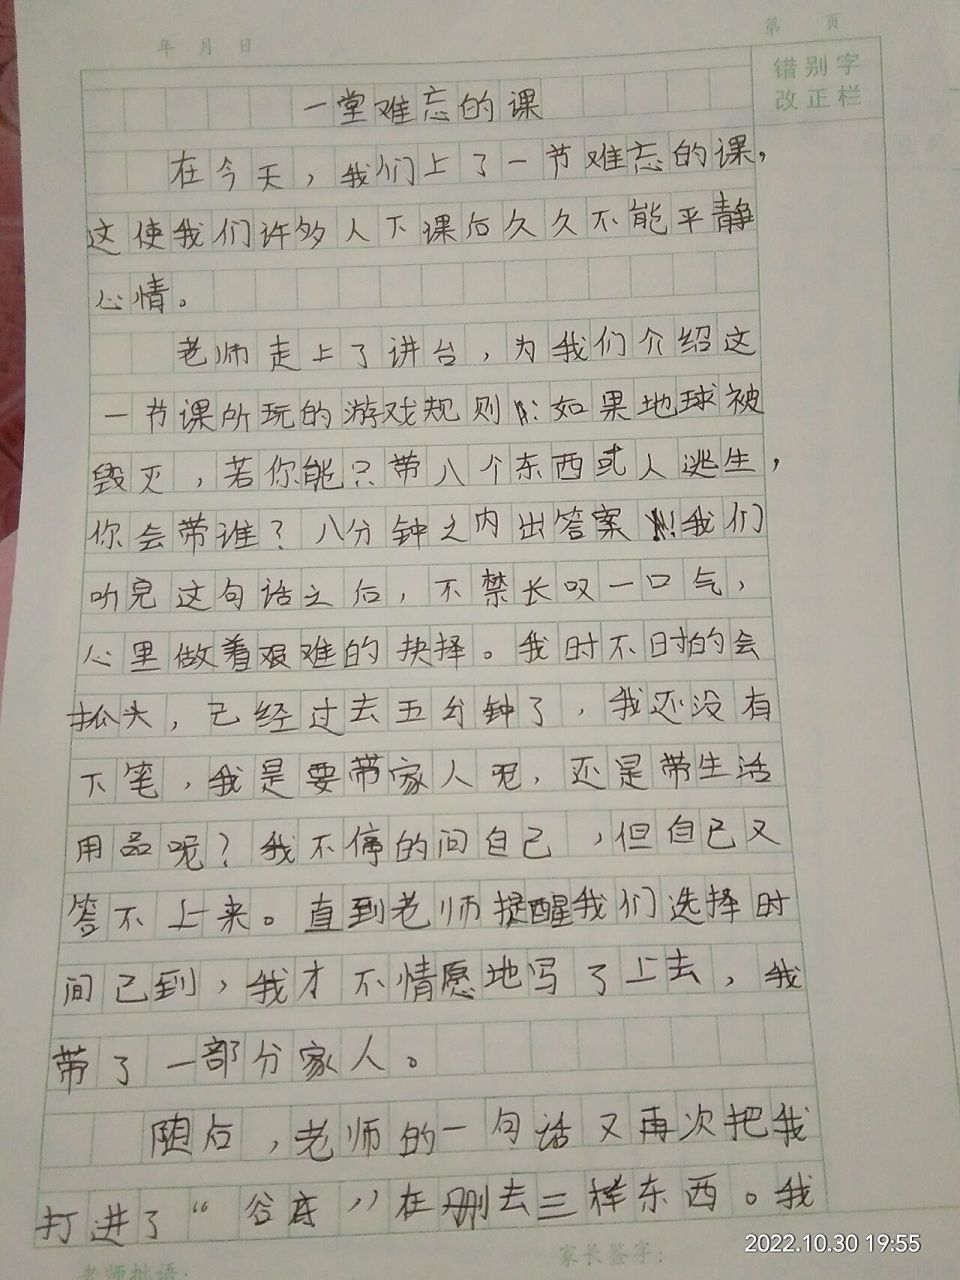 年 月 日
第 页
错别字
改正栏
一堂难忘的课
在今天，我们上了一节难忘的课，
这使我们许多人下课后久久不能平静
心情。
老师走上了讲台，为我们介绍这
一节课所玩的游戏规则：如果地球被
毁灭，若你能只带八个东西或人逃生，
你会带谁？八分钟之内出答案！我们
听完这句话之后，不禁长叹一口气，
心里做着艰难的抉择。我时不时的会
抓头，已经过去五分钟了，我还没有
下笔，我是要带家人呢，还是带生活
用品呢？我不停的问自己，但自己又
答不上来。直到老师提醒我们选择时
间已到，我才不情愿地写了上去，我
带了一部分家人。
随后，老师的一句话又再次把我
打进了“谷底”在删去三样东西。我
老师批语：
家长签字：
2022.10.30 19:55